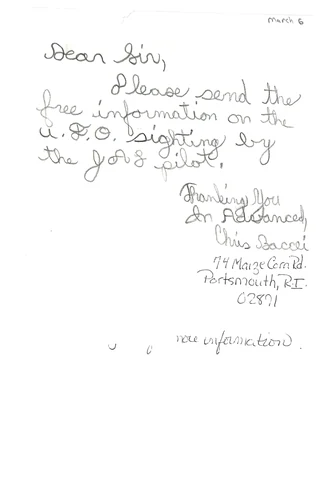 March 6
Dear Sir,
Please send the
free information on the
U.F.O. sighting by
the JAS pilot.
Thanking You
In Advanced,
Chris Baccei
74 Maize Corn Rd.
Portsmouth, R.I.
02871
information.